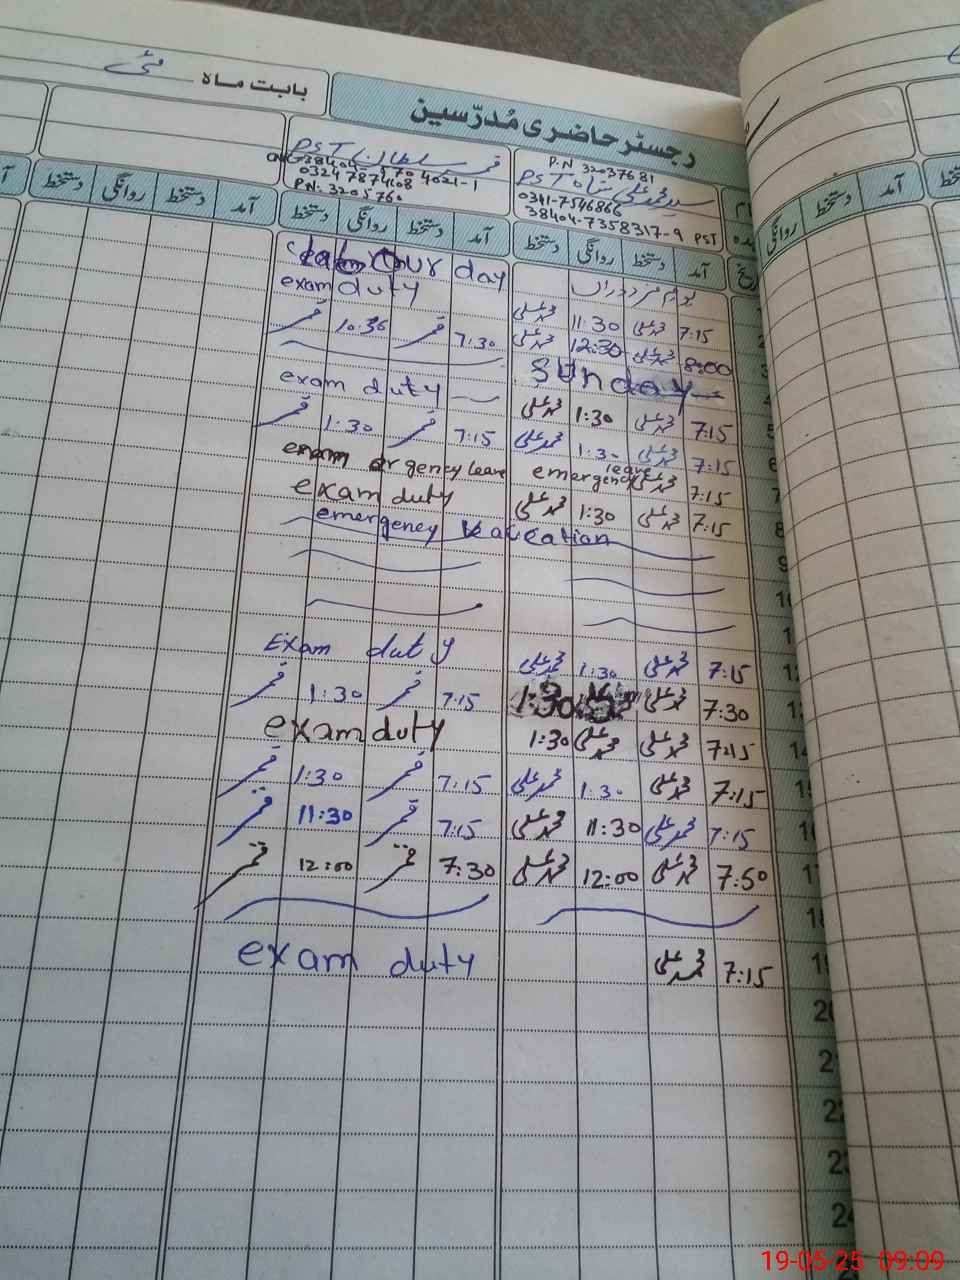 بابت ماہ مئی
رجسٹر حاضری مُدرّسین
P.N 32037681
سید محمد علی شاہ PST
0341-7546866
38404-7358317-9 PST
قمر سلطان PST
CNIC 38404 4021-1
03247874608
P.N: 3205760
آمد دستخط روانگی دستخط آمد دستخط روانگی دستخط آمد دستخط روانگی دستخط
آمد دستخط روانگی
یوم مزدوراں labour day
7:15 محمد علی 11:30 محمد علی exam duty
8:00 محمد علی 12:30 محمد علی 7:30 قمر 10:36 قمر
Sunday
7:15 محمد علی 1:30 محمد علی exam duty
7:15 محمد علی 1:30 محمد علی 7:15 قمر 1:30 قمر
7:15 محمد علی emergency leave leave
7:15 محمد علی 1:30 محمد علی exam duty
emergency vacation
7:15 محمد علی 1:30 محمد علی Exam duty
7:30 محمد علی 1:30 7:15 قمر 1:30 قمر
7:15 محمد علی محمد علی 1:30 exam duty
7:15 محمد علی 1:30 محمد علی 7:15 قمر 1:30 قمر
7:15 محمد علی 11:30 محمد علی 7:15 قمر 11:30 قمر
7:50 محمد علی 12:00 محمد علی 7:30 قمر 12:00 قمر
18
19 7:15 محمد علی exam duty
20
21
22
23
24
19-05-25 09:09